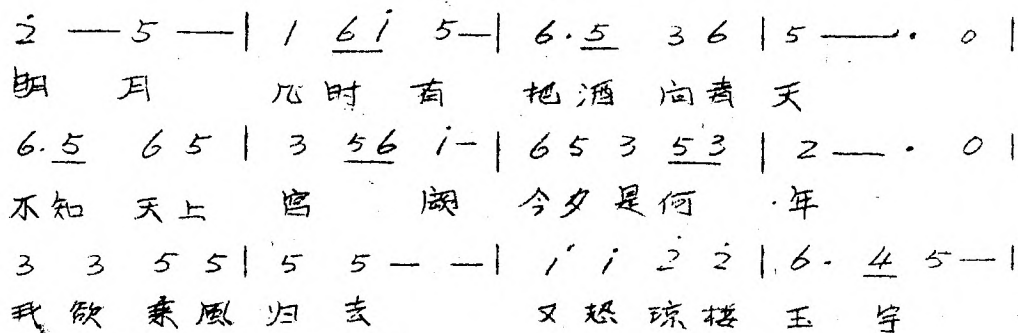 2̇ — 5 — | 1 6 i 5 — | 6. 5 3 6 | 5 — . 0 |
明 月 几 时 有 把 酒 问 青 天
6. 5 6 5 | 3 5 6 i - | 6 5 3 5 3 | 2 — . 0 |
不 知 天 上 宫 阙 今 夕 是 何 年
3 3 5 5 | 5 5 — — | i i 2̇ 2̇ | 6. 4 5 — |
我 欲 乘 風 归 去 又 恐 琼 楼 玉 宇